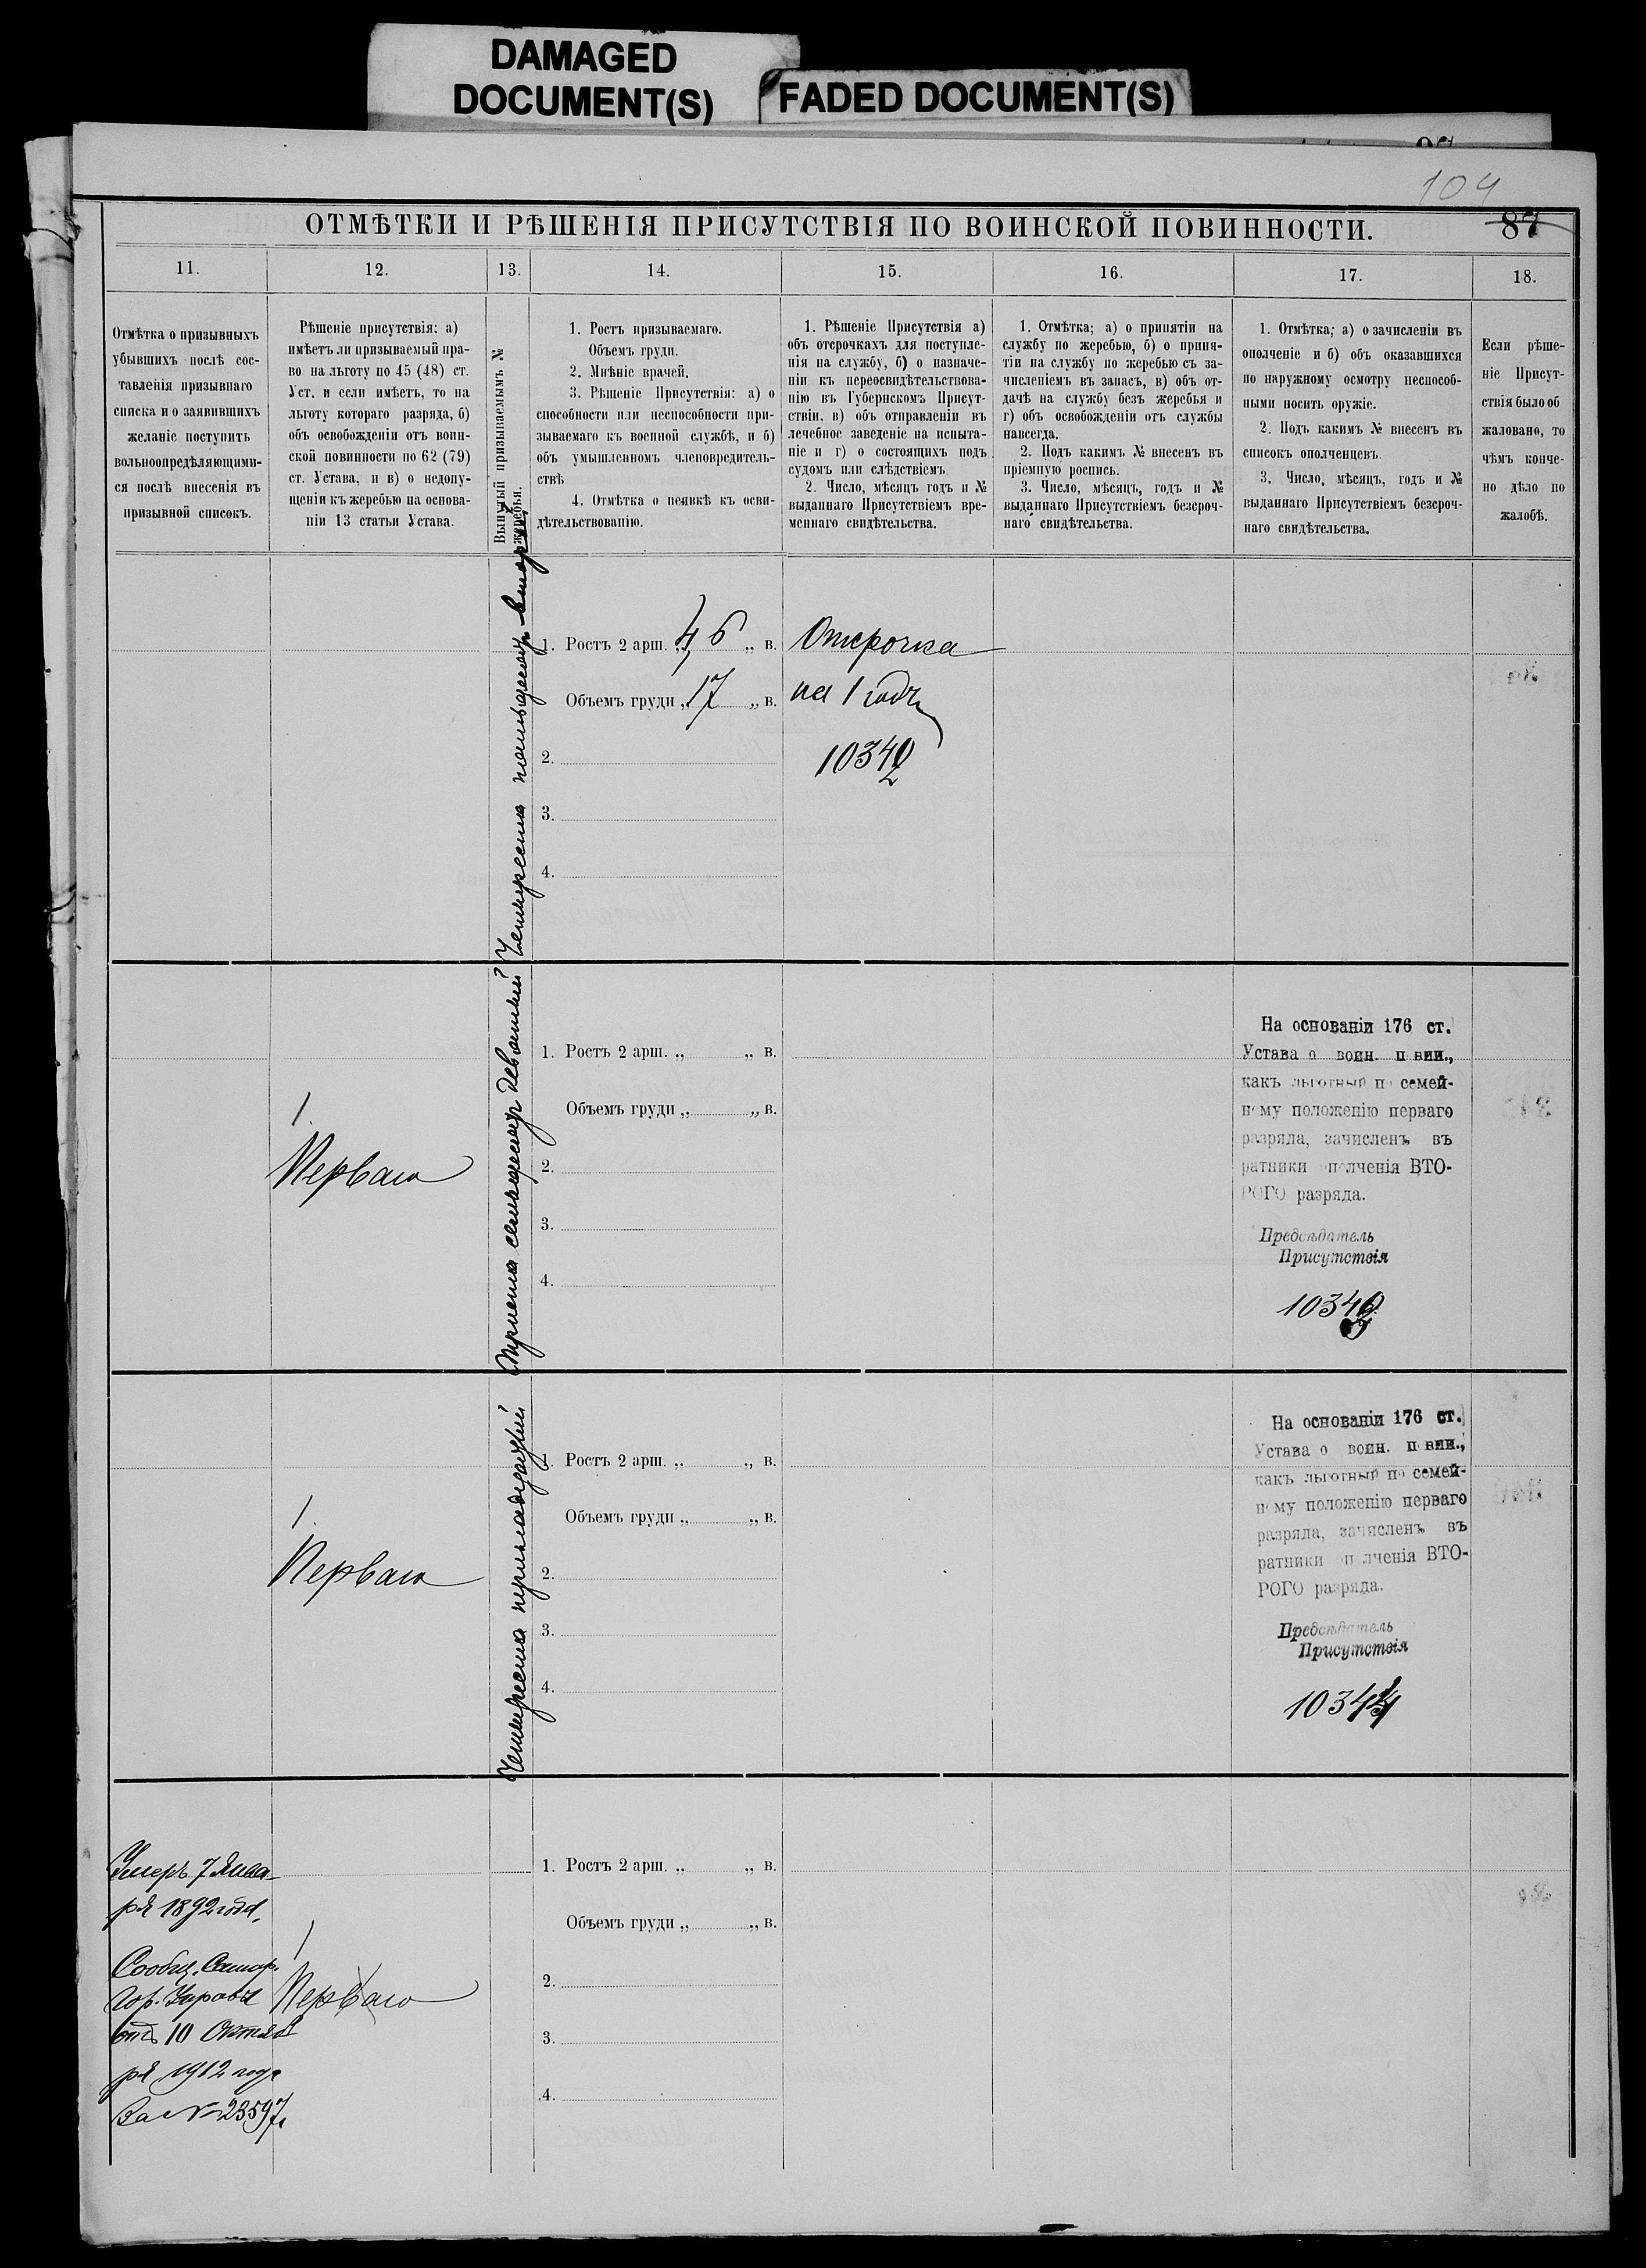 DAMAGED
DOCUMENT(S)
FADED DOCUMENT(S)
104
87
ОТМѢТКИ И РѢШЕНІЯ ПРИСУТСТВІЯ ПО ВОИНСКОЙ ПОВИННОСТИ.
11.
12.
13.
14.
15.
16.
17.
18.
Отмѣтка о призывныхъ
убывшихъ послѣ сос-
тавленія призывнаго
списка и о заявившихъ
желаніе поступить
вольноопредѣляющими-
ся послѣ внесенія въ
призывной списокъ.
Рѣшеніе присутствія: а)
имѣетъ ли призываемый пра-
во на льготу по 45 (48) ст.
Уст. и если имѣетъ, то на
льготу котораго разряда, б)
объ освобожденіи отъ воин-
ской повинности по 62 (79)
ст. Устава, и в) о недопу-
щеніи къ жеребью на основа-
ніи 13 статьи Устава.
Вынутый призываемымъ №
жеребья.
1. Ростъ призываемаго.
Объемъ груди.
2. Мнѣніе врачей.
3. Рѣшеніе Присутствія: а) о
способности или неспособности при-
зываемаго къ военной службѣ, и б)
объ умышленномъ членовредитель-
ствѣ
4. Отмѣтка о неявкѣ къ осви-
дѣтельствованію.
1. Рѣшеніе Присутствія а)
объ отсрочкахъ для поступле-
нія на службу, б) о назначе-
ніи къ переосвидѣтельствова-
нію въ Губернскомъ Присут-
ствіи. в) объ отправленіи въ
лечебное заведеніе на испыта-
ніе и г) о состоящихъ подъ
судомъ или слѣдствіемъ
2. Число, мѣсяцъ годъ и №
выданнаго Присутствіемъ вре-
меннаго свидѣтельства.
1. Отмѣтка; а) о принятіи на
службу по жеребью, б) о приня-
тіи на службу по жеребью съ за-
численіемъ въ запасъ, в) объ от-
дачѣ на службу безъ жеребья и
г) объ освобожденіи отъ службы
навсегда.
2. Подъ какимъ № внесенъ въ
пріемную роспись.
3. Число, мѣсяцъ, годъ и №
выданнаго Присутствіемъ безсроч-
наго свидѣтельства.
1. Отмѣтка; а) о зачисленіи въ
ополченіе и б) объ оказавшихся
по наружному осмотру неспособ-
ными носить оружіе.
2. Подъ какимъ № внесенъ въ
списокъ ополченцевъ.
3. Число, мѣсяцъ, годъ и №
выданнаго Присутствіемъ безсроч-
наго свидѣтельства.
Если рѣше-
ніе Присут-
ствія было об
жаловано, то
чѣмъ конче-
но дѣло по
жалобѣ.
Четыреста пятьдесятъ второй
1. Ростъ 2 арш. „ 4,6 „ в.
Объемъ груди „ 17 „ в.
2.
3.
4.
Отсрочка
на 1 годъ
10342
1.
Перваго
Триста семьдесятъ девятый
1. Ростъ 2 арш. „ „ в.
Объемъ груди „ „ в.
2.
3.
4.
На основаніи 176 ст.
Устава о воин. повин.,
какъ льготный по семей-
ному положенію перваго
разряда, зачисленъ въ
ратники ополченія ВТО-
РОГО разряда.
Предсѣдатель
Присутствія
10343
1.
Перваго
Четыреста
1. Ростъ 2 арш. „ „ в.
Объемъ груди „ „ в.
2.
3.
4.
На основаніи 176 ст.
Устава о воин. повин.,
какъ льготный по семей-
ному положенію перваго
разряда, зачисленъ въ
ратники ополченія ВТО-
РОГО разряда.
Предсѣдатель
Присутствія
10344
Умеръ 7 Янва-
ря 1892 года.
Сообщ. Самар.
Гор. Управы
отъ 10 Октяб
ря 1912 года
За № 23597.
1
Перваго
1. Ростъ 2 арш. „ „ в.
Объемъ груди „ „ в.
2.
3.
4.